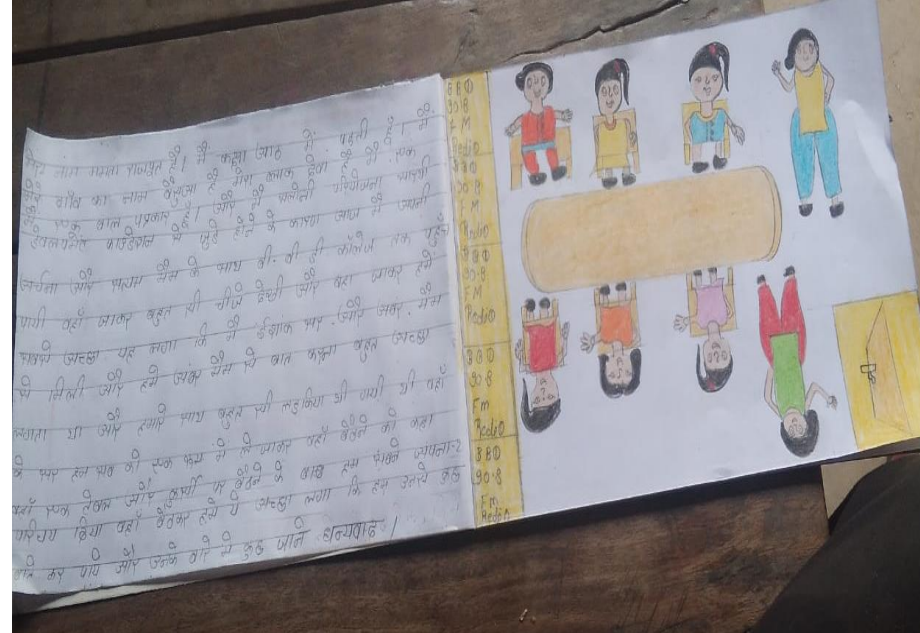 मेरा नाम ममता राजपूत है। मैं कक्षा आठ में पढ़ती हूँ। मैं
मेरे गाँव का नाम है मेरा ब्लाक है मैं एक
मैं एक बाल पत्रकार हूँ। और मैं परियोजना
डेवलपमेंट फाउंडेशन से जुड़े होने के कारण आज मैं अपनी
अर्चना और मैम के साथ बी. बी. डी कॉलेज तक पहुँच
पायी वहाँ जाकर बहुत सी चीजे देखी और वहा जाकर हमे
सबसे अच्छा यह लगा कि मैं सर और मैम
से मिली और हमे मैम से बात करना बहुत अच्छा
लगता था और हमारे साथ बहुत सी लड़किया भी गयी थी वहाँ
के सर हम सब को एक रूम में ले जाकर वहाँ बैठने को कहा
वहाँ एक टेबल और कुर्सी पर बैठने के बाद हम सबने अपना-2
परिचय दिया वहाँ बैठकर हमे ये अच्छा लगा कि हम उनसे कुछ
बाते कर पाये और उनके बारे में कुछ जाने धन्यवाद।
BBD
90.8
FM
Redio
BBD
90.8
FM
Redio
BBD
90.8
FM
Redio
BBD
90.8
Fm
Redio
BBD
90.8
Fm
Redio